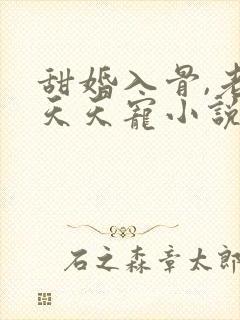 甜婚入骨,老
天天寵小說
石之森章太郎